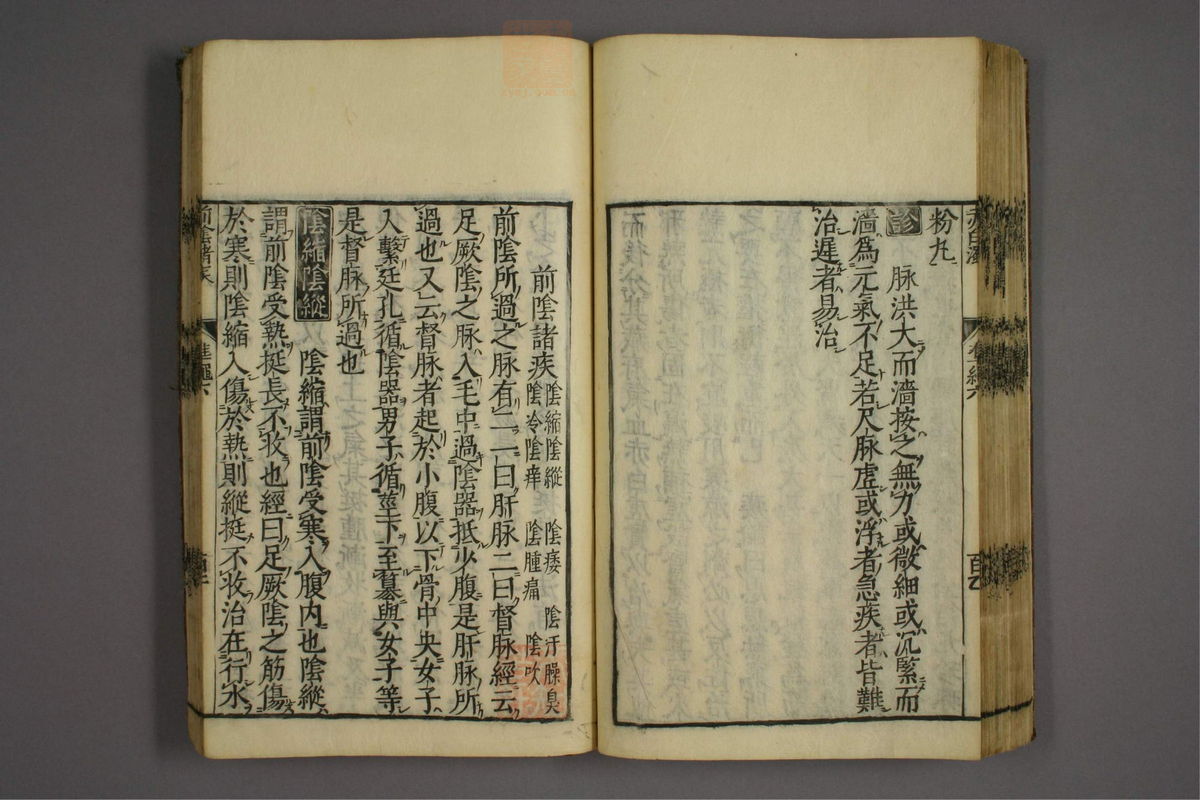 粉九
診 脉洪大而濇按之無力或微細或沉緊而
濇爲元氣不足若尺脉虛或浮者急疾者皆難
治遲者易治
前陰諸疾 陰縮陰縱 陰痿 陰汗臊臭
陰冷陰痒 陰腫痛 陰吹
前陰所過之脉有二一曰肝脉二曰督脉經云
足厥陰之脉入毛中過陰器抵少腹是肝脉所
過也又云督脉者起於小腹以下骨中央女子
入繫廷孔循陰器男子循莖下至篡與女子等
是督脉所過也
陰縮陰縱 陰縮謂前陰受寒入腹內也陰縱
謂前陰受熱挺長不收也經曰足厥陰之筋傷
於寒則陰縮入傷於熱則縱挺不收治在行水
前陰諸疾